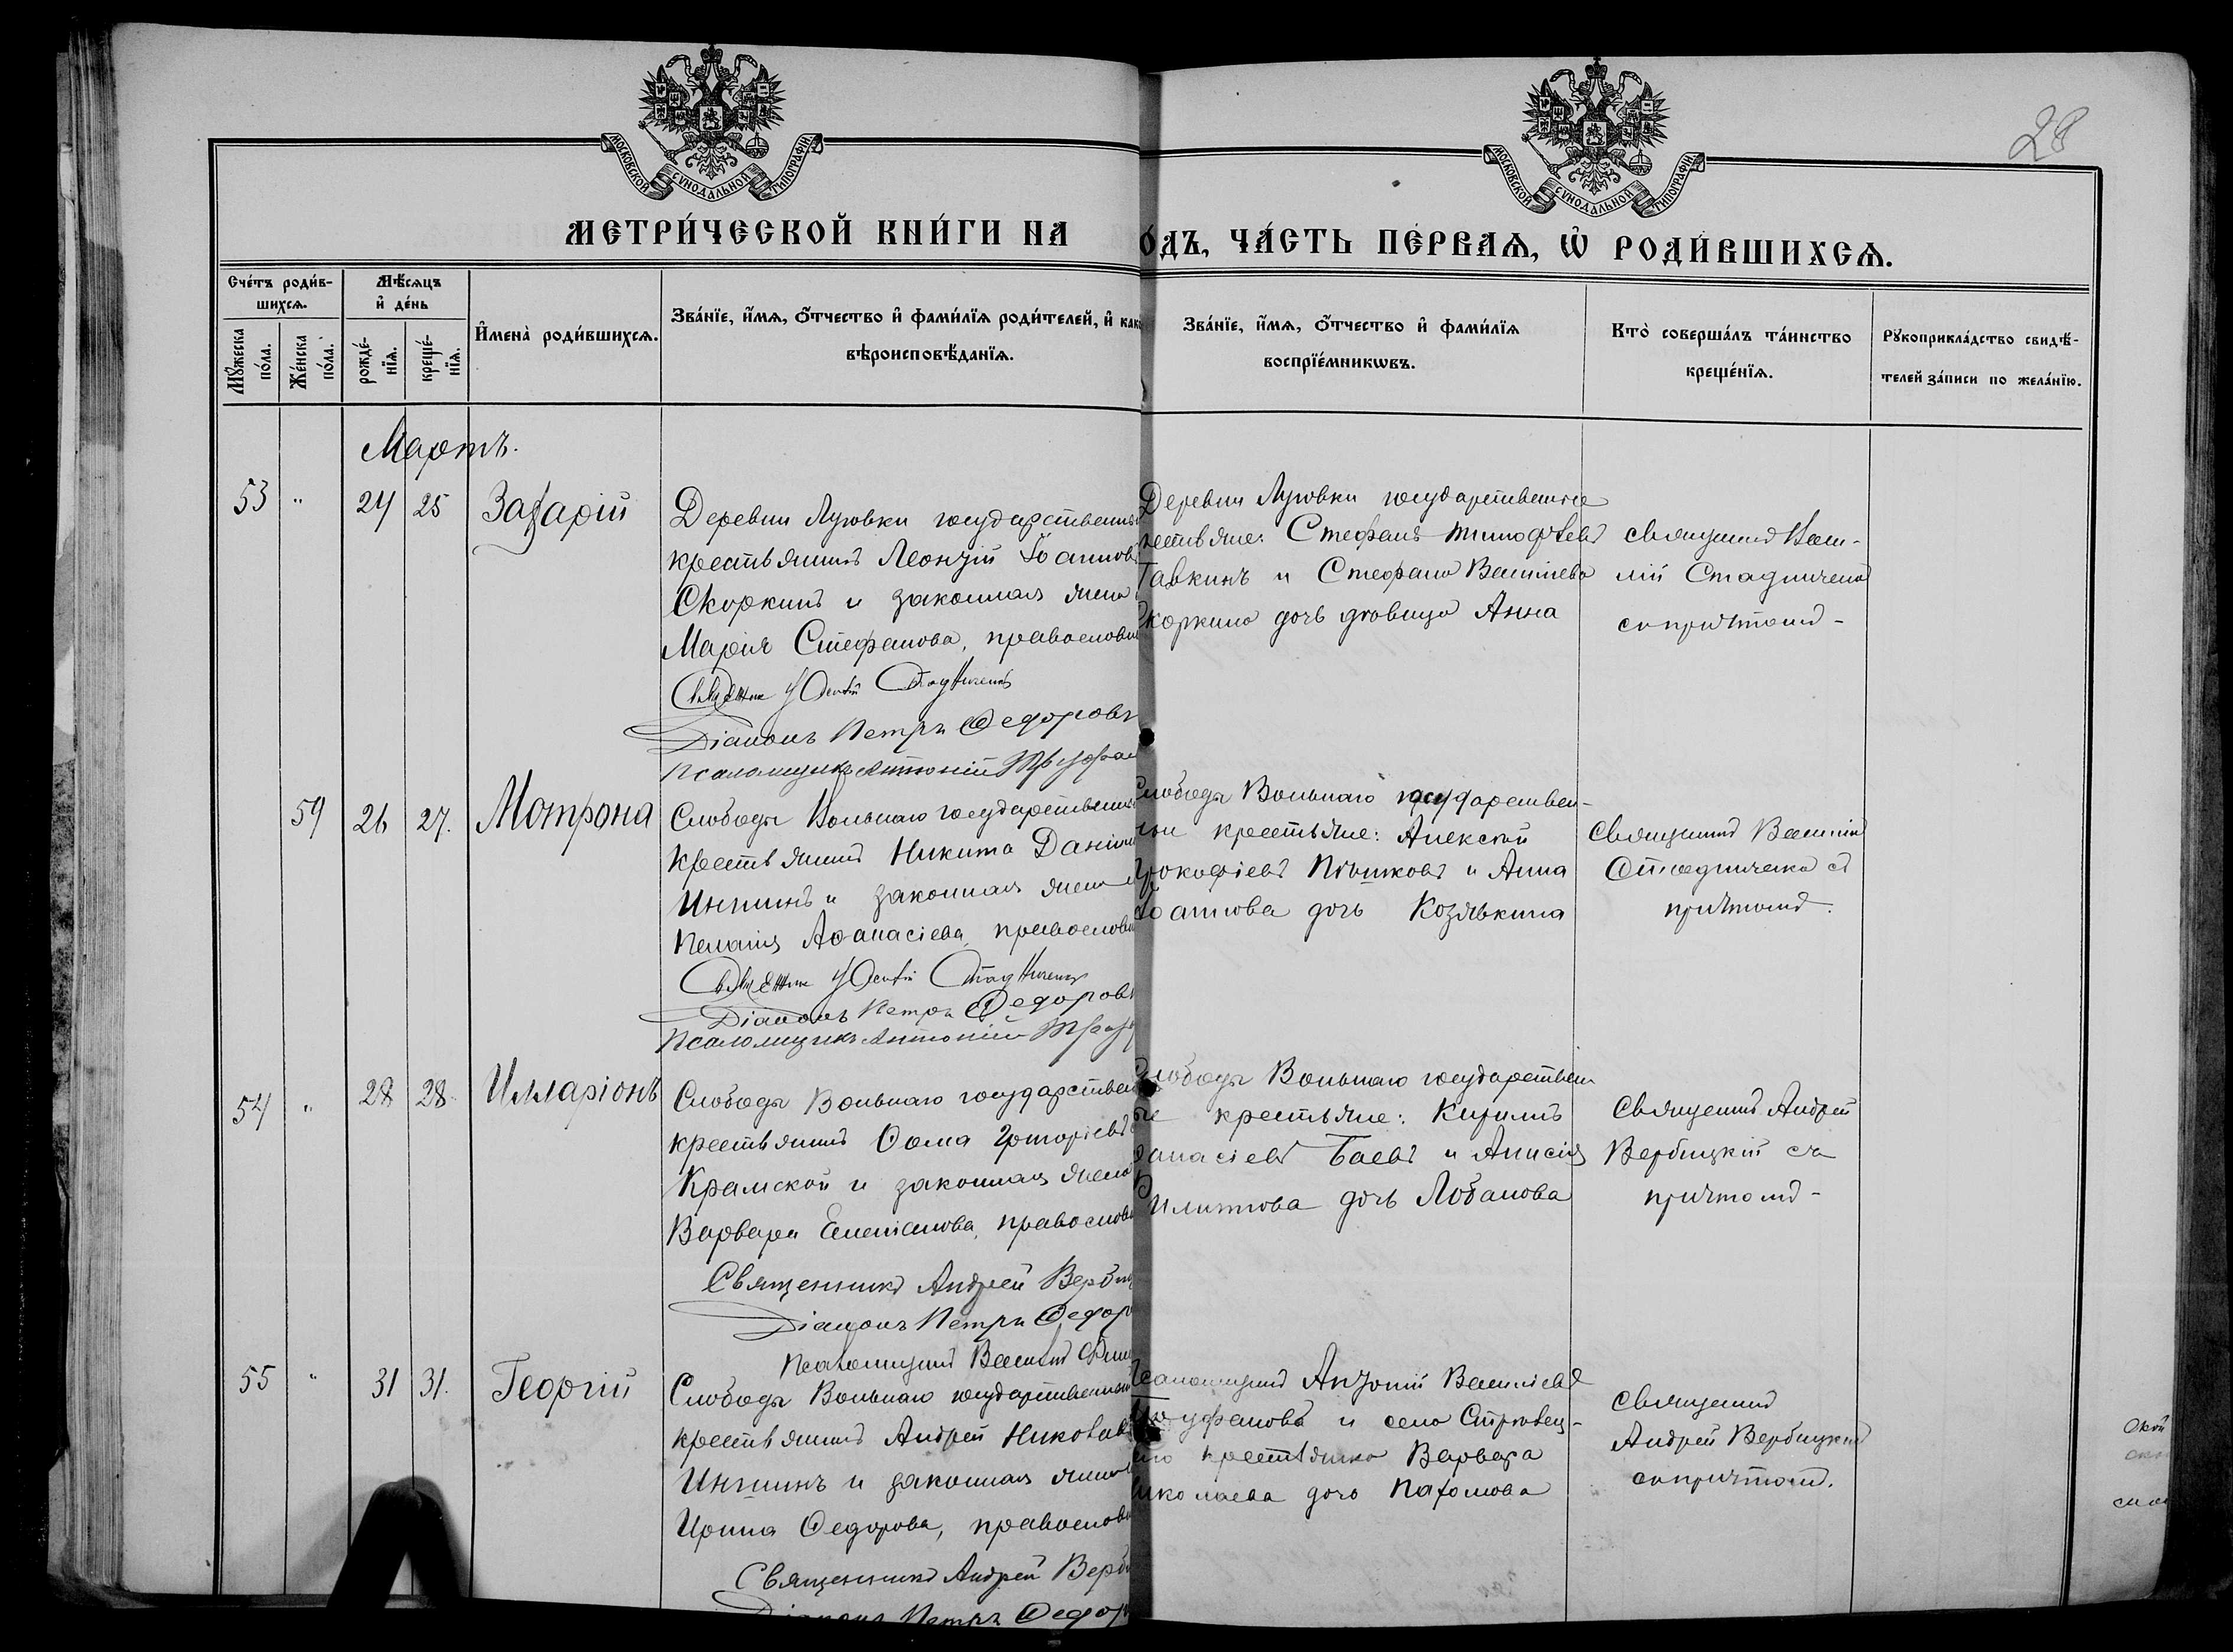 28
МОСКОВСКОЙ СУНОДАЛЬНОЙ ТИПОГРАФІИ
МОСКОВСКОЙ СУНОДАЛЬНОЙ ТИПОГРАФІИ
МЕТРИ́ЧЕСКОЙ КНИ́ГИ НА
О́ДЪ, ЧА́СТЬ ПЕ́РВАѦ, Ѡ҆ РОДИ́ВШИХСѦ.
Сче́тъ роди́в-
шихсѧ.
Мꙋ́жеска по́ла.
Же́нска по́ла.
Мѣ́сѧцъ
и҆ де́нь
рожде́-
нїѧ.
креще́-
нїѧ.
И҆мена̀ роди́вшихсѧ.
Зва́нїе, и҆́мѧ, ѻ҆́тчество и҆ фами́лїѧ роди́телей, и҆ како
вѣроисповѣ́данїѧ.
Зва́нїе, и҆́мѧ, ѻ҆́тчество и҆ фами́лїѧ
воспрїе́мникѡвъ.
Кто̀ соверша́лъ та́инство
креще́нїѧ.
Рꙋкоприкла́дство свидѣ́-
телей за́писи по жела́нїю.
Мартъ.
53 " 24 25 Захарій
Деревни Луговки государственный
крестьянинъ Леонтій Іоанновъ
Скоркинъ и законная жена
Марія Стефанова, православн
Священник Стадниченко
Діаконъ Петръ Ѳедоровъ
Псаломщикъ Антоній
Деревни Луговки государственные
рестьяне: Стефанъ Тимофѣевъ
Гавкинъ и Стефана Васильева
Скоркина дочь дѣвица Анна
священникъ Васи-
лій Стадниченко
съ причтомъ -
59 26 27. Мотрона
Слободы Вольнаго государственн
крестьянинъ Никита Даніил
Инкинъ и законная жена
Пелагія Аѳанасіева, православ
Священник Стадниченко
Діаконъ Петръ Ѳедоровъ
Псаломщикъ Антоній
Слободы Вольнаго государствен-
ные крестьяне: Алексѣй
Прокофіевъ и Анна
Іоаннова дочь Козявкина
Священникъ Василій
Стадниченко съ
причтомъ.
54 " 28 28. Илларіонъ
Слободы Вольнаго государствен
крестьянинъ Ѳома Григоріевъ
Крамской и законная жена
Варвара Емеліанова, православ
Священникъ Андрей Верби
Діаконъ Петръ Ѳедор
Псаломщикъ Василій
Слободы Вольнаго государствен
ые крестьяне: Кирилъ
Аѳанасіевъ Баевъ и Анисія
Филиппова дочь Лобанова
Священникъ Андрей
Вербицкій съ
причтомъ -
55 " 31 31. Георгій
Слободы Вольнаго государственный
крестьянинъ Андрей Николаев
Инкинъ и законная жена
Ирина Ѳедорова, православ
Священникъ Андрей Верби
Діаконъ Петръ Ѳедор
Псаломщикъ Антоній Васильевъ
и села
крестьянка Варвара
Николаева дочь Пахомова
Священникъ
Андрей Вербицкій
съ причтомъ.